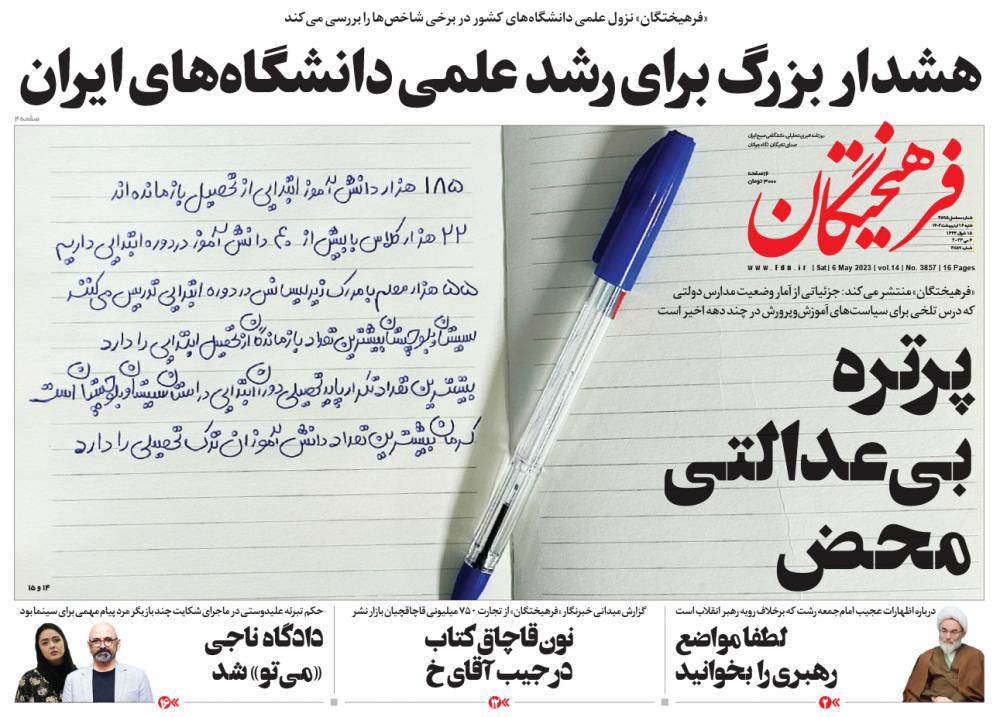 «فرهیختگان» نزول علمی دانشگاه‌های کشور در برخی شاخص‌ها را بررسی می‌کند
هشدار بزرگ برای رشد علمی دانشگاه‌های ایران
صفحه ۴
روزنامه خبری تحلیلی دانشگاهی صبح ایران
صدای نخبگان، نگاه جوانان
۱۶ صفحه
۳۰۰۰ تومان
فرهیختگان
شنبه ۱۶ اردیبهشت ۱۴۰۲
۱۵ شوال ۱۴۴۴
۶ می ۲۰۲۳
www.Fdn.ir | Sat | 6 May 2023 | vol.14 | No. 3857 | 16 Pages
«فرهیختگان» منتشر می‌کند: جزئیاتی از آمار وضعیت مدارس دولتی
که درس تلخی برای سیاست‌های آموزش‌وپرورش در چند دهه اخیر است
پرتره
بی‌عدالتی
محض
۱۸۵ هزار دانش آموز ابتدایی از تحصیل بازمانده اند
۲۲ هزار کلاس با بیش از ۴۰ دانش آموز در دوره ابتدایی داریم
۵۵ هزار معلم با مدرک زیر لیسانس در دوره ابتدایی تدریس می‌کنند
سیستان و بلوچستان بیشترین تعداد بازماندگان از تحصیل ابتدایی را دارد
بیشترین تعداد تکرار پایه تحصیلی دوران ابتدایی در استان سیستان و بلوچستان است
کرمان بیشترین تعداد دانش آموزان ترک تحصیلی را دارد
۱۴ و ۱۵
درباره اظهارات عجیب امام‌جمعه رشت که برخلاف رویه رهبر انقلاب است
لطفا مواضع
رهبری را بخوانید
۲
گزارش میدانی خبرنگار «فرهیختگان» از تجارت ۷۵۰ میلیونی قاچاقچیان بازار نشر
نون قاچاق کتاب
در جیب آقای خ
۱۲
حکم تبرئه علیدوستی در ماجرای شکایت چند بازیگر مرد پیام مهمی برای سینما بود
دادگاه ناجی
«می‌تو» شد
۱۶